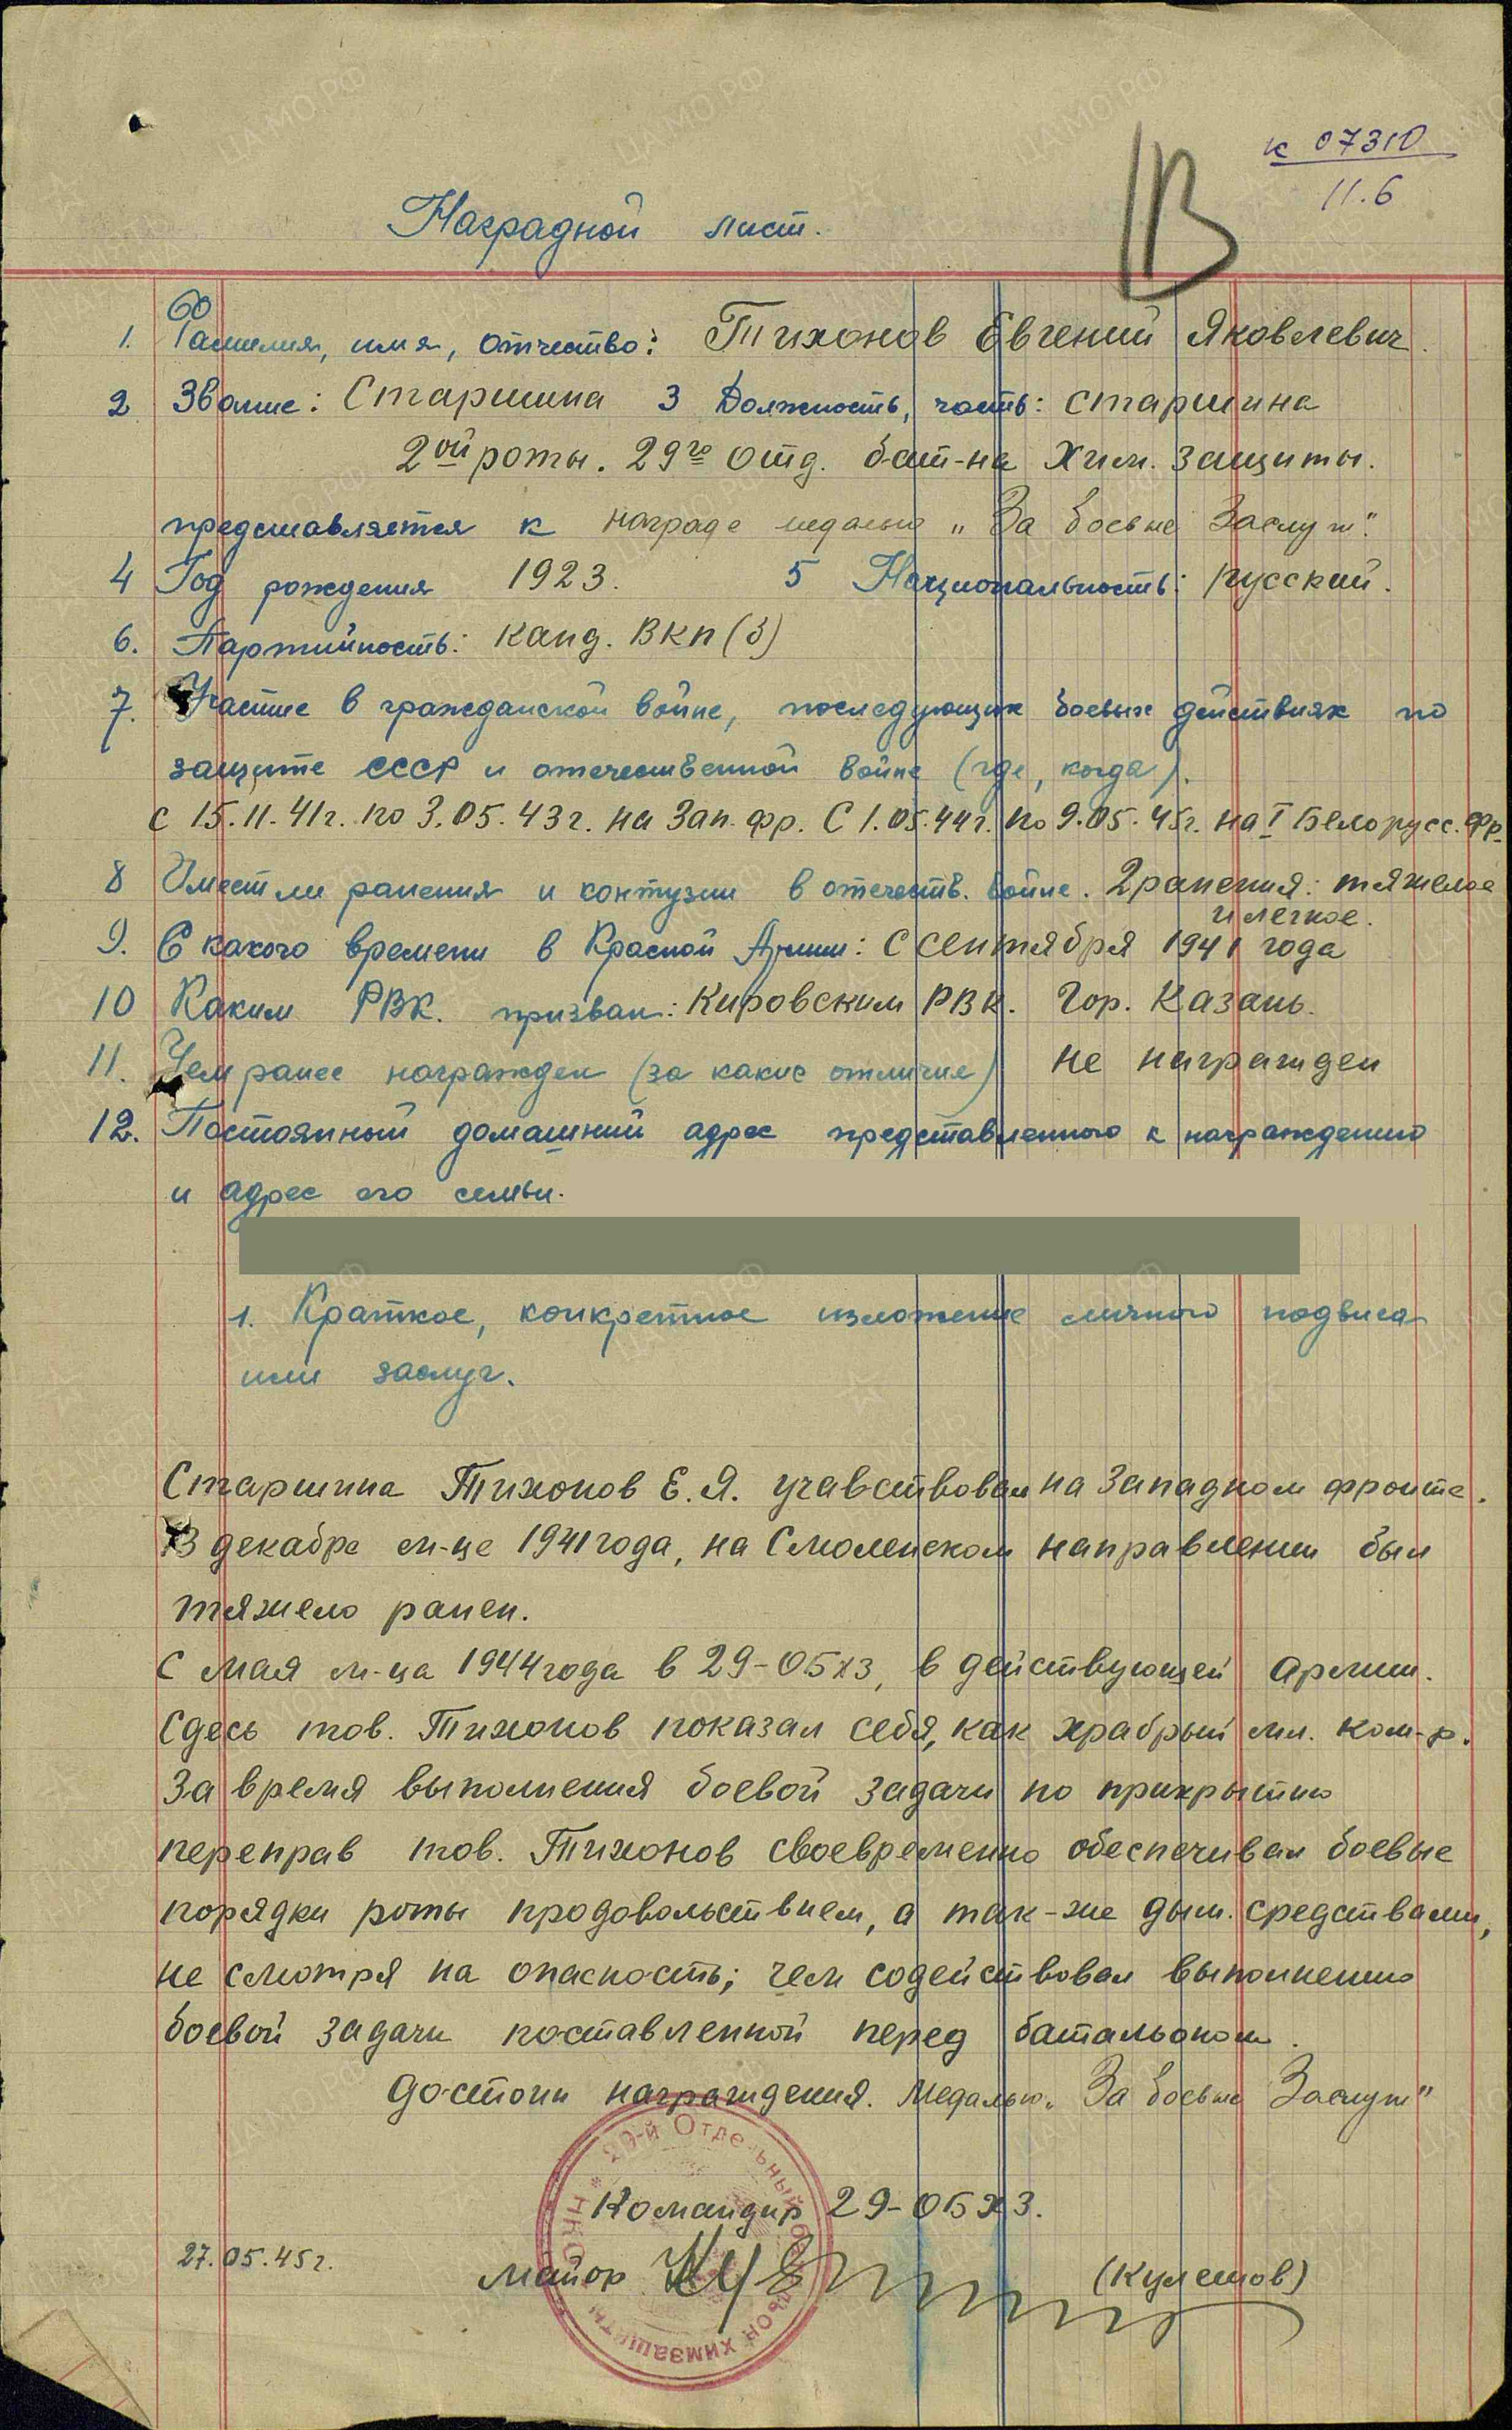 к 07310
11.6
В
Наградной лист.
1. Фамилия, имя, отчество: Тихонов Евгений Яковлевич.
2 Звание: Старшина 3 Должность, часть: старшина
2ой роты. 29го отд. бат-на Хим. защиты.
представляется к награде медалью „За боевые Заслуги".
4 Год рождения 1923. 5 Национальность: русский.
6. Партийность: канд. ВКП(б)
7. Участие в гражданской войне, последующих боевых действиях по
защите СССР и отечественной войне (где, когда).
с 15.11.41г. по 3.05.43г. на Зап. фр. С 1.05.44г. по 9.05.45г. на I Белорусс. Фр.
8 Имеет ли ранения и контузии в отечеств. войне. 2 ранения: тяжелое
и легкое.
9. С какого времени в Красной Армии: С сентября 1941 года
10 Каким РВК. призван: Кировским РВК. Гор. Казань.
11. Чем ранее награжден (за какие отличия) не награжден
12. Постоянный домашний адрес представленного к награждению
и адрес его семьи.
1. Краткое, конкретное изложение личного подвига
или заслуг.
Старшина Тихонов Е.Я. учавствовал на Западном фронте.
В декабре м-це 1941 года, на Смоленском направлении был
тяжело ранен.
С мая м-ца 1944 года в 29-ОБХЗ, в действующей армии.
Сдесь тов. Тихонов показал себя, как храбрый мл. ком-р.
За время выполнения боевой задачи по прикрытию
переправ тов. Тихонов своевременно обеспечивал боевые
порядки роты продовольствием, а так-же дым. средствами,
не смотря на опасность; чем содействовал выполнению
боевой задачи поставленной перед батальоном.
достоин награждения. медалью „За боевые Заслуги"
29-й Отдельный батальон химзащиты
Командир 29-ОБХЗ.
27.05.45г.
майор (Кулешов)